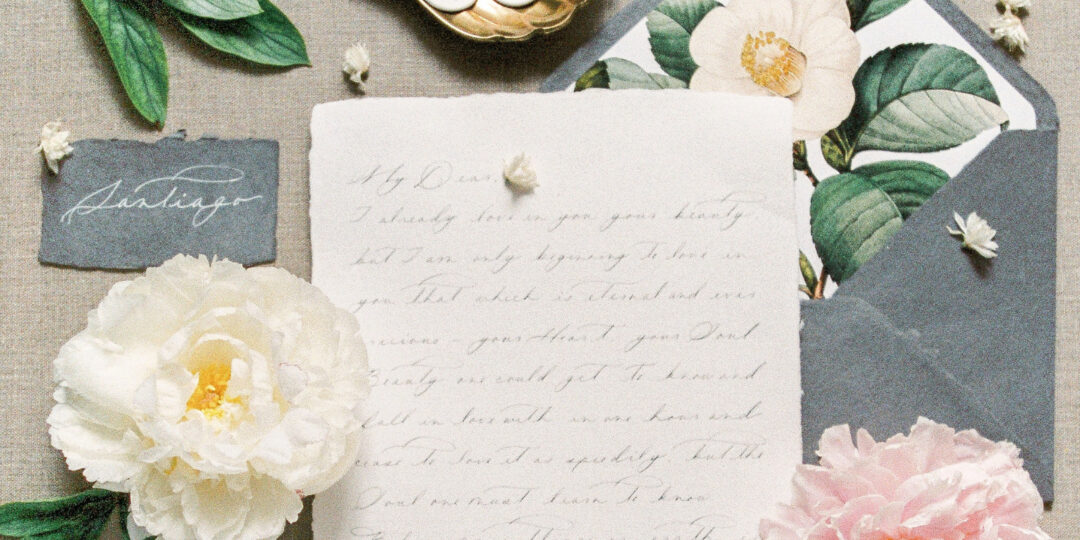 Santiago
My Dear,
I already love in you your beauty,
but I am only beginning to love in
you that which is eternal and ever
precious - your Heart, your Soul.
Beauty one could get to know and
fall in love with in one hour and
cease to love it as speedily, but the
Soul one must learn to know.